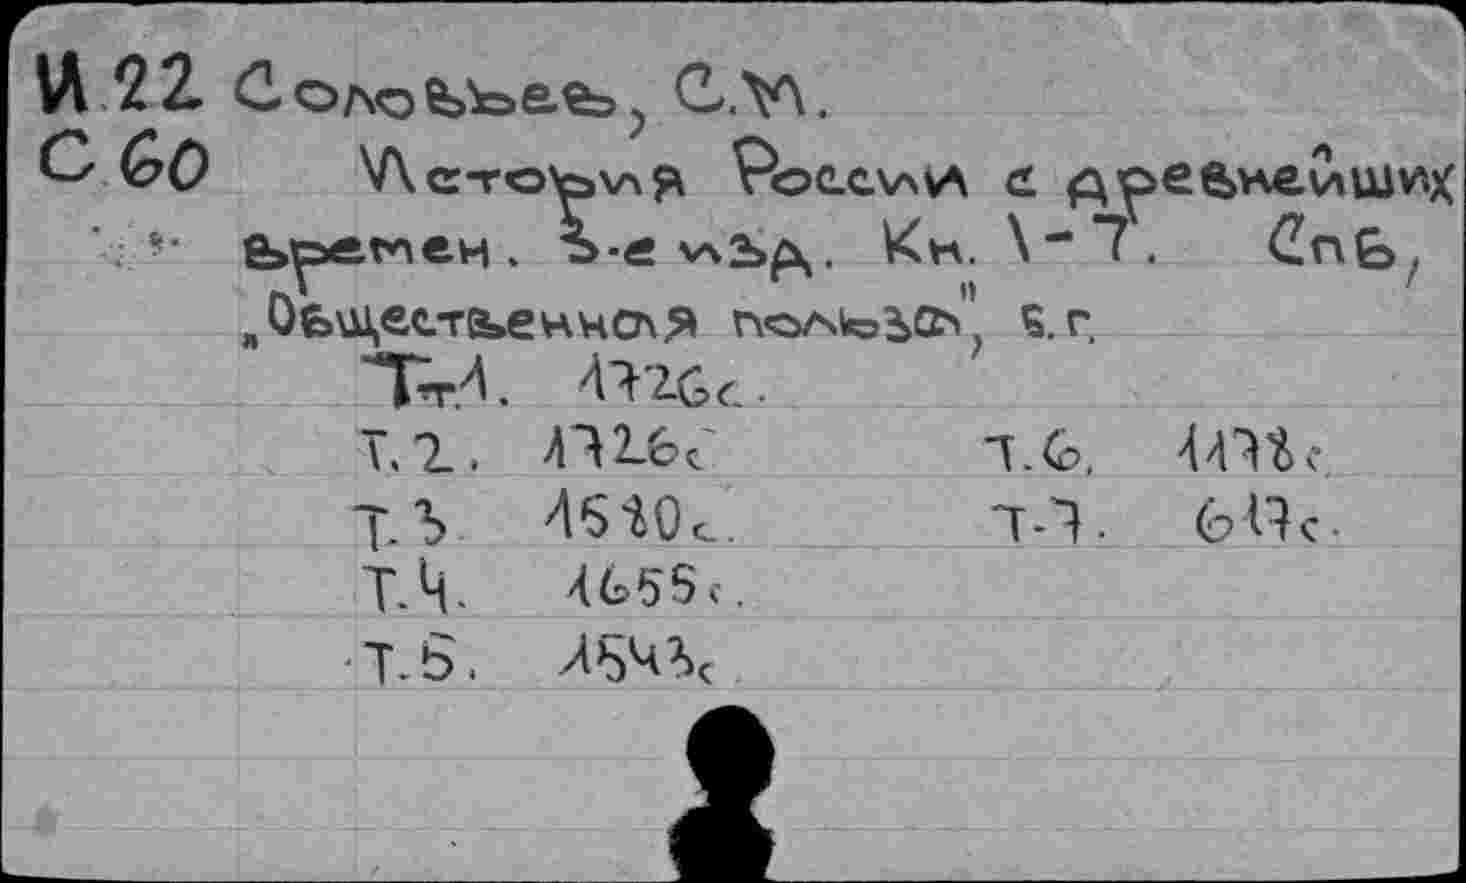 И 22 Соловьев, С.М.
С 60 История России с древнейших
времен. 3-е изд. Кн. 1-7. Спб,
„Общественная польза", б.г.
Т.1. 1726с.
Т.2. 1726с Т.6. 1178с
Т.3 1580с. Т-7. 617с.
Т.4. 1655с.
Т.5. 1543с